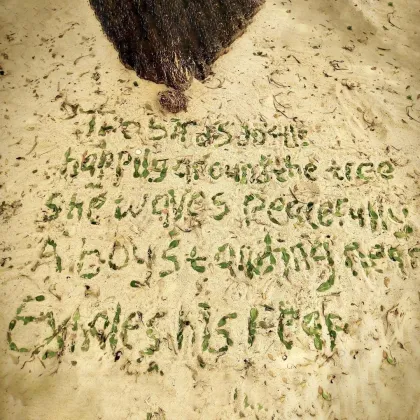 The birds
happily around the tree
she waves peacefully
A boy standing near
Exhales his Fear